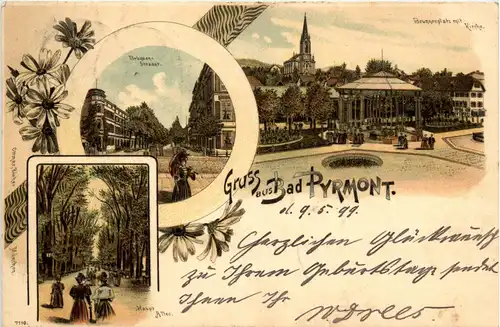 Brunnenplatz mit
Kirche.
Brunnen-
Strasse.
Gruss aus BAD PYRMONT.
d. 9. 5. 99.
Herzlichen Glückwunsch
zu Ihrem Geburtstage sendet
Ihnen Ihr
Allee.
7796.